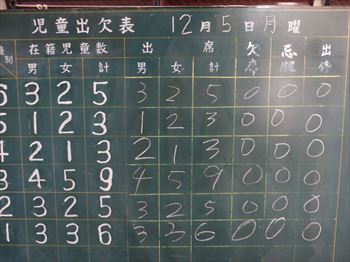 児童出欠表 12月5日月曜
種別 在籍児童数 出席 欠席 忌服 出停
男 女 計 男 女 計
6 3 2 5 3 2 5 0 0 0
5 1 2 3 1 2 3 0 0 0
4 2 1 3 2 1 3 0 0 0
3 4 5 9 4 5 9 0 0 0
2 3 2 5 3 2 5 0 0 0
1 3 3 6 3 3 6 0 0 0